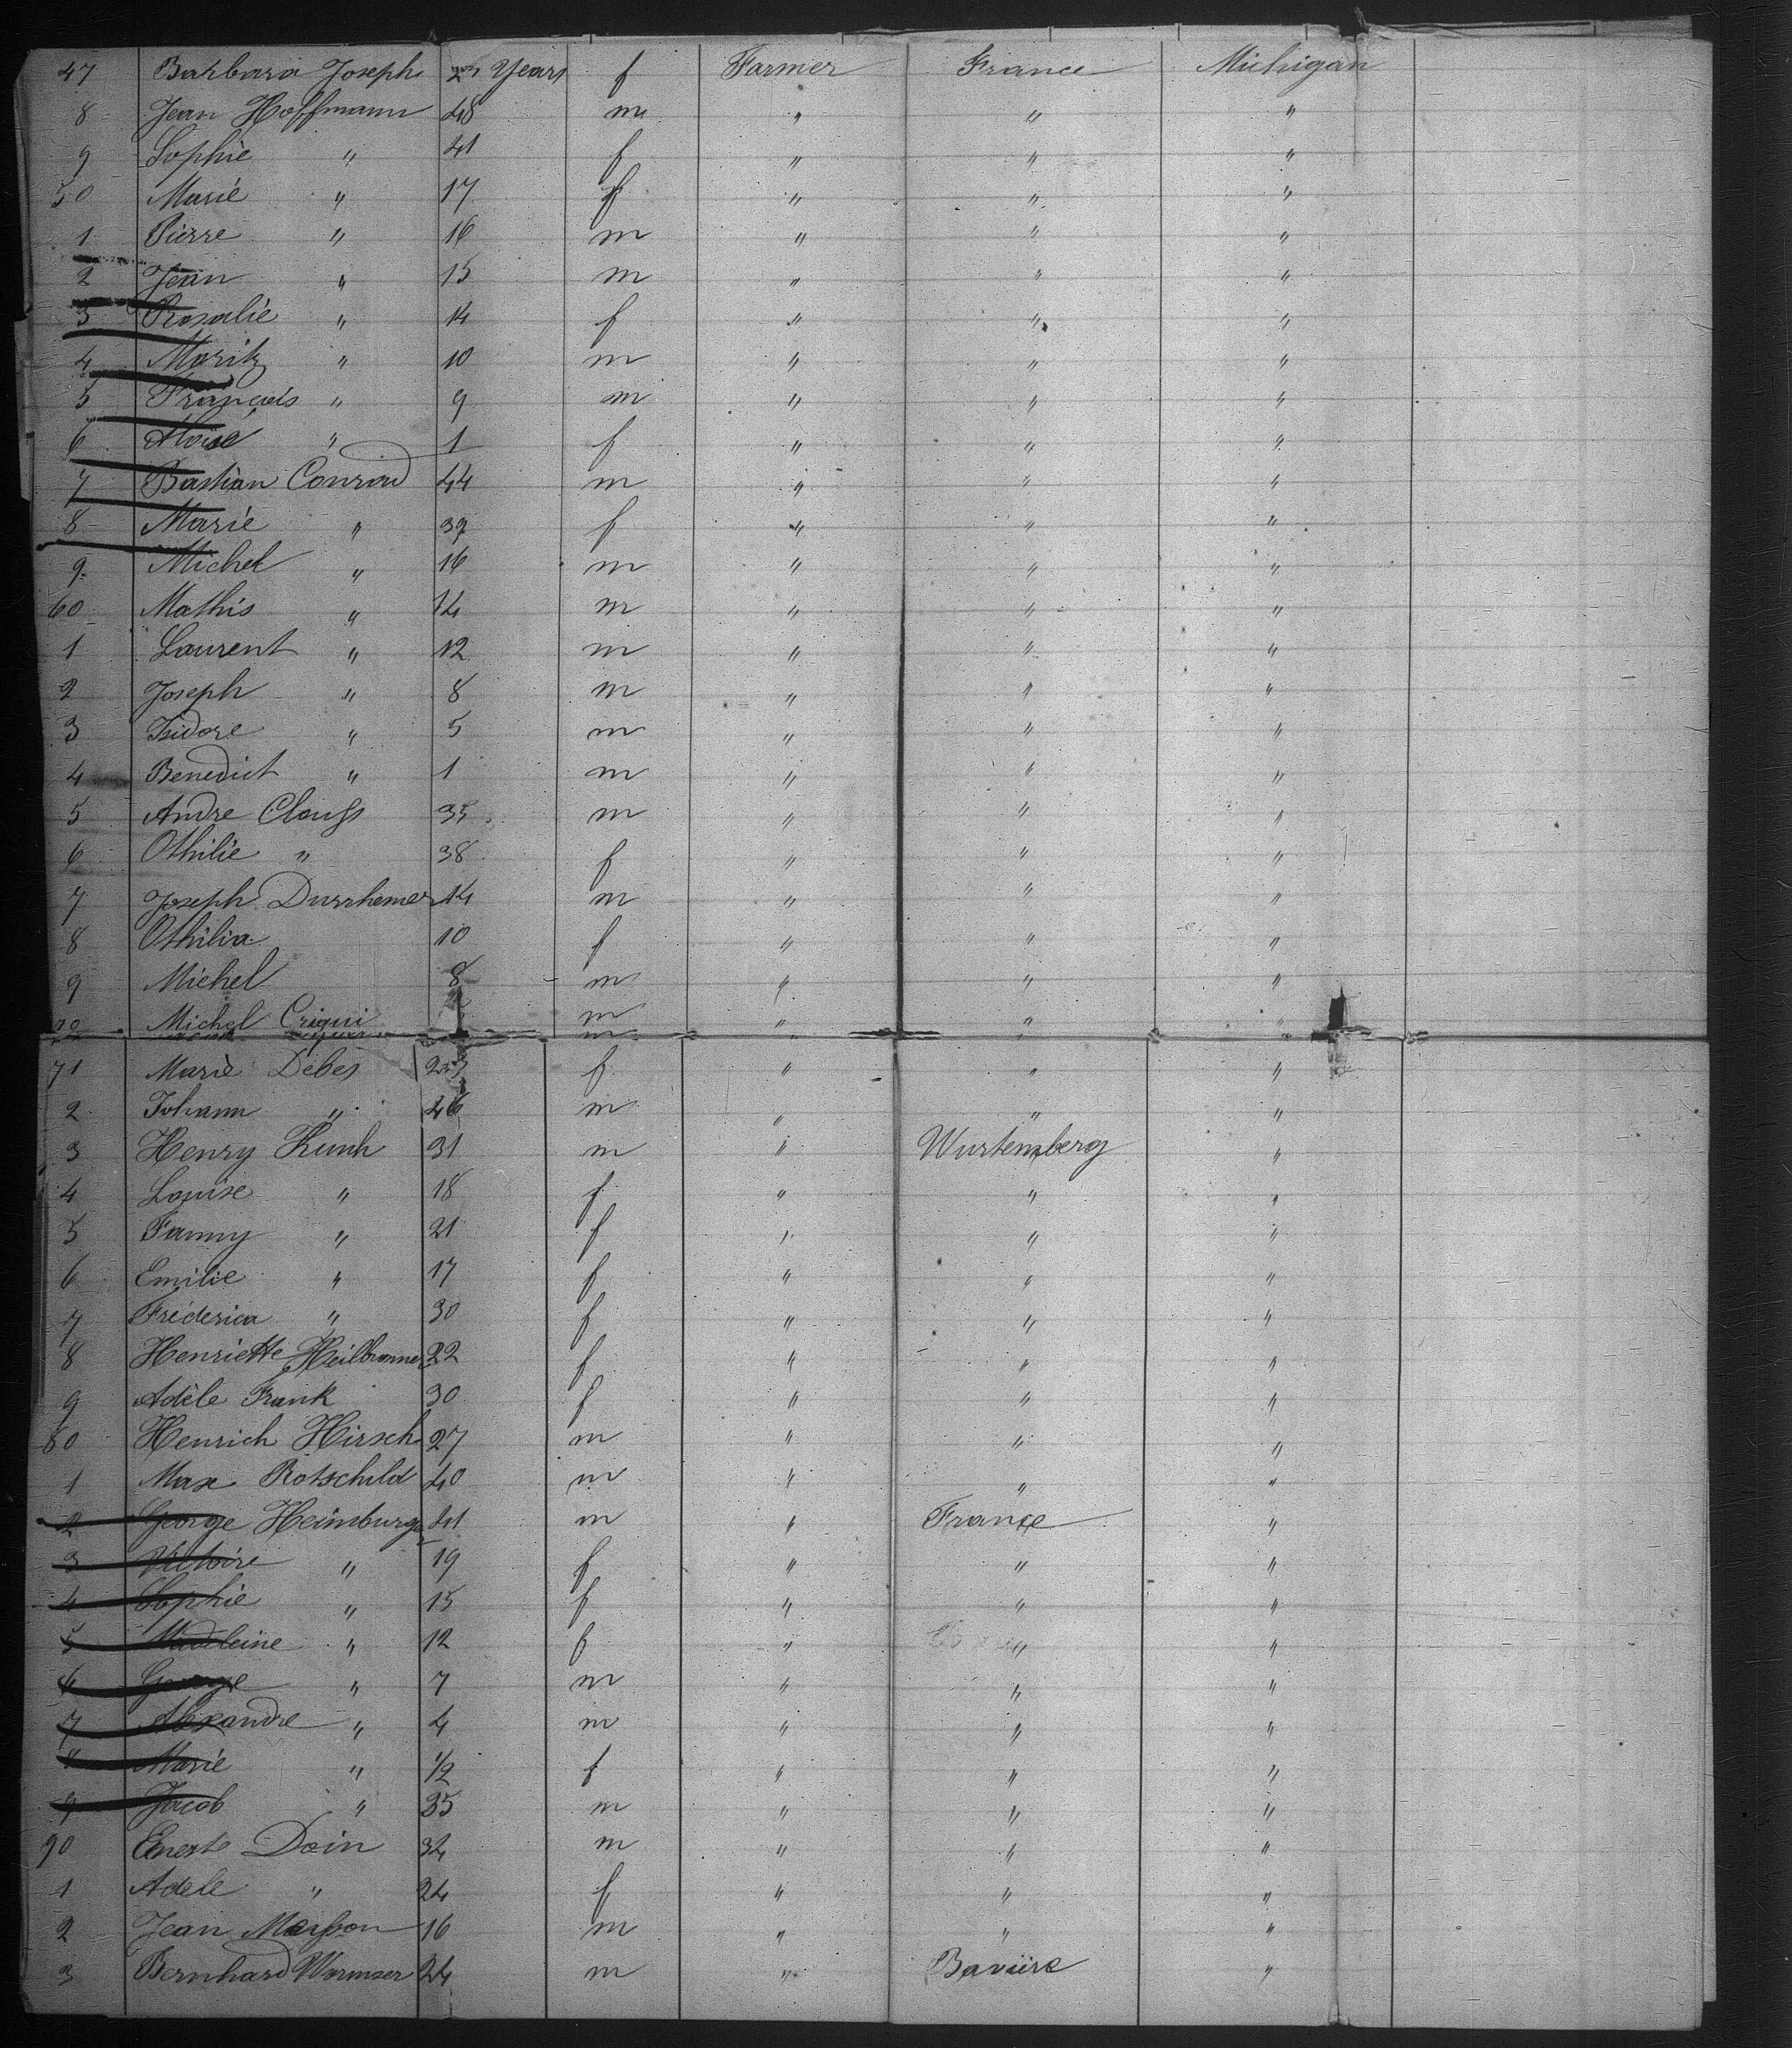 47 Barbara Joseph 25 Years f Farmer France Michigan
8 Jean Hoffmann 48 m " " "
9 Sophie " 41 f " " "
50 Marie " 17 f " " "
1 Pierre " 16 m " " "
2 Jean " 15 m " " "
3 Rosalie " 14 f " " "
4 Moritz " 10 m " " "
5 François " 9 m " " "
6 " 1 f " " "
7 Bastian Conrad 44 m " " "
8 Marie " 39 f " " "
9 Michel " 16 m " " "
60 Mathis " 14 m " " "
1 Laurent " 12 m " " "
2 Joseph " 8 m " " "
3 Isidore " 5 m " " "
4 Benedict " 1 m " " "
5 Andre Clauss 35 m " " "
6 Othilie " 38 f " " "
7 Joseph Durrhemer 14 m " " "
8 Othilia 10 f " " "
9 Michel 8 m " " "
70 Michel Criqui m " " "
71 Marie Debes 23 f " " "
2 Johann " 46 m " " "
3 Henry Kunh 31 m " Wurtemberg "
4 Louise " 18 f " " "
5 Fanny " 21 f " " "
6 Emilie " 17 f " " "
7 Fréderica " 30 f " " "
8 Henriette Heilbronner 22 f " " "
9 Adèle Frank 30 f " " "
80 Henrich Hirsch 27 m " " "
1 Max Rotschild 40 m " " "
2 George Heimburger 41 m " France "
3 Victoire " 19 f " " "
4 Sophie " 15 f " " "
5 Madeleine " 12 f " " "
6 George " 7 m " " "
7 Alexandre " 4 m " " "
8 Marie " 1/2 f " " "
9 Jacob " 35 m " " "
90 Enerst Doin 32 m " " "
1 Adele " 24 f " " "
2 Jean Masson 16 m " " "
3 Bernhard Wurmser 24 m " Baviere "